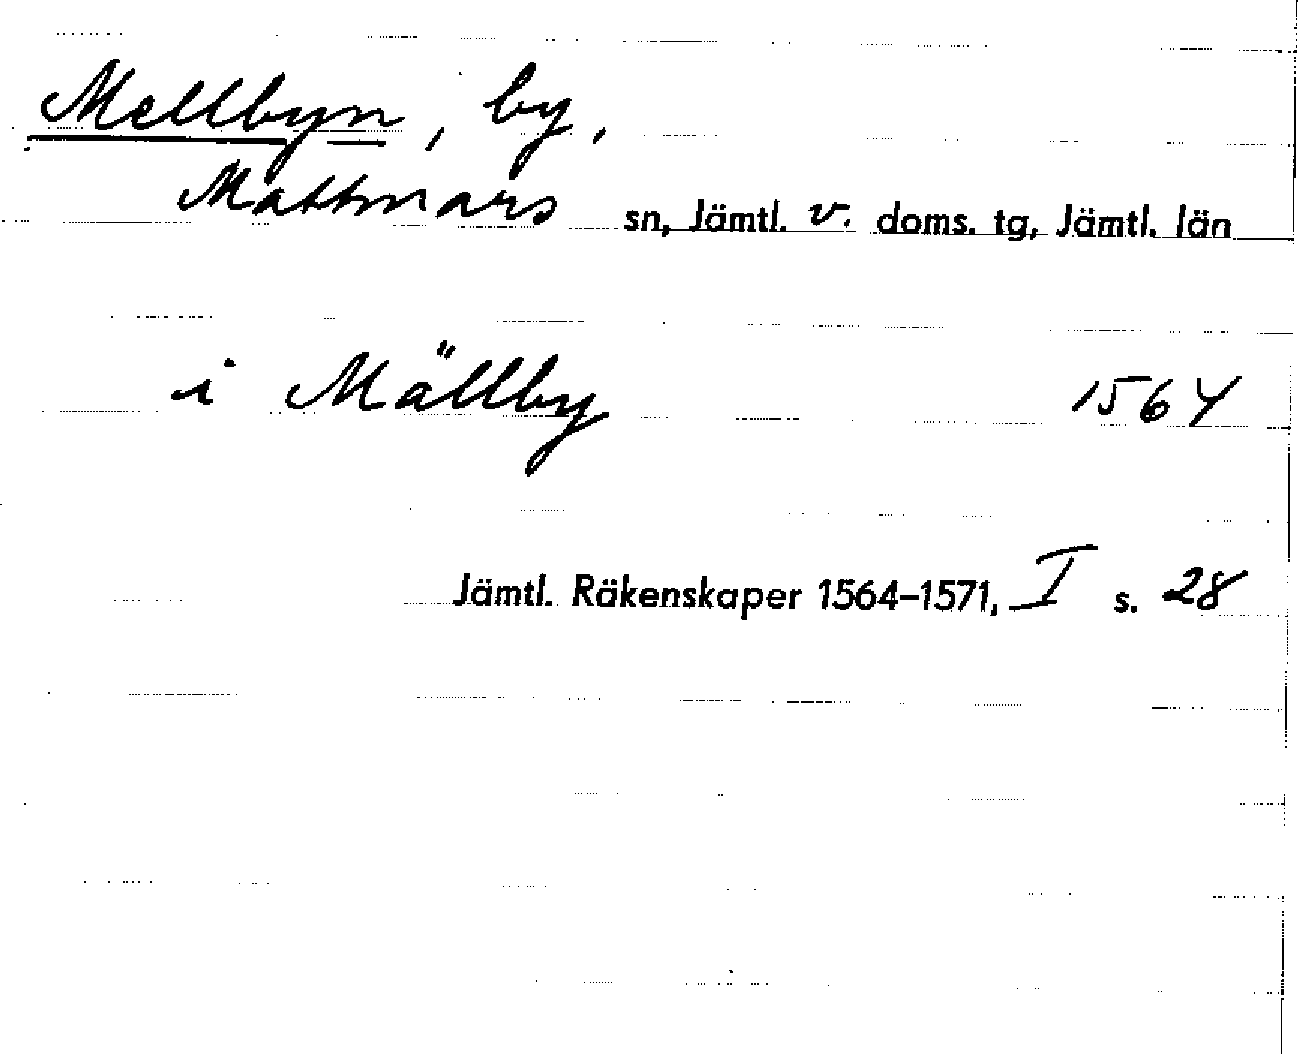 Mellbyn, by,
Mattmars sn, Jämtl. v. doms. tg, Jämtl. län
i Mällby 1564
Jämtl. Räkenskaper 1564–1571, I s. 28